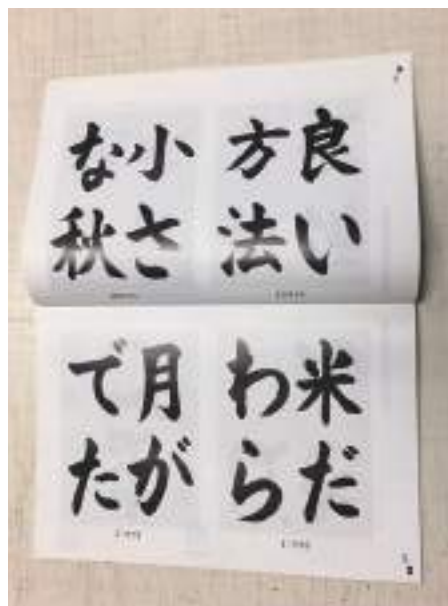 良い
方法
小さ
な秋
米だ
わら
月が
でた